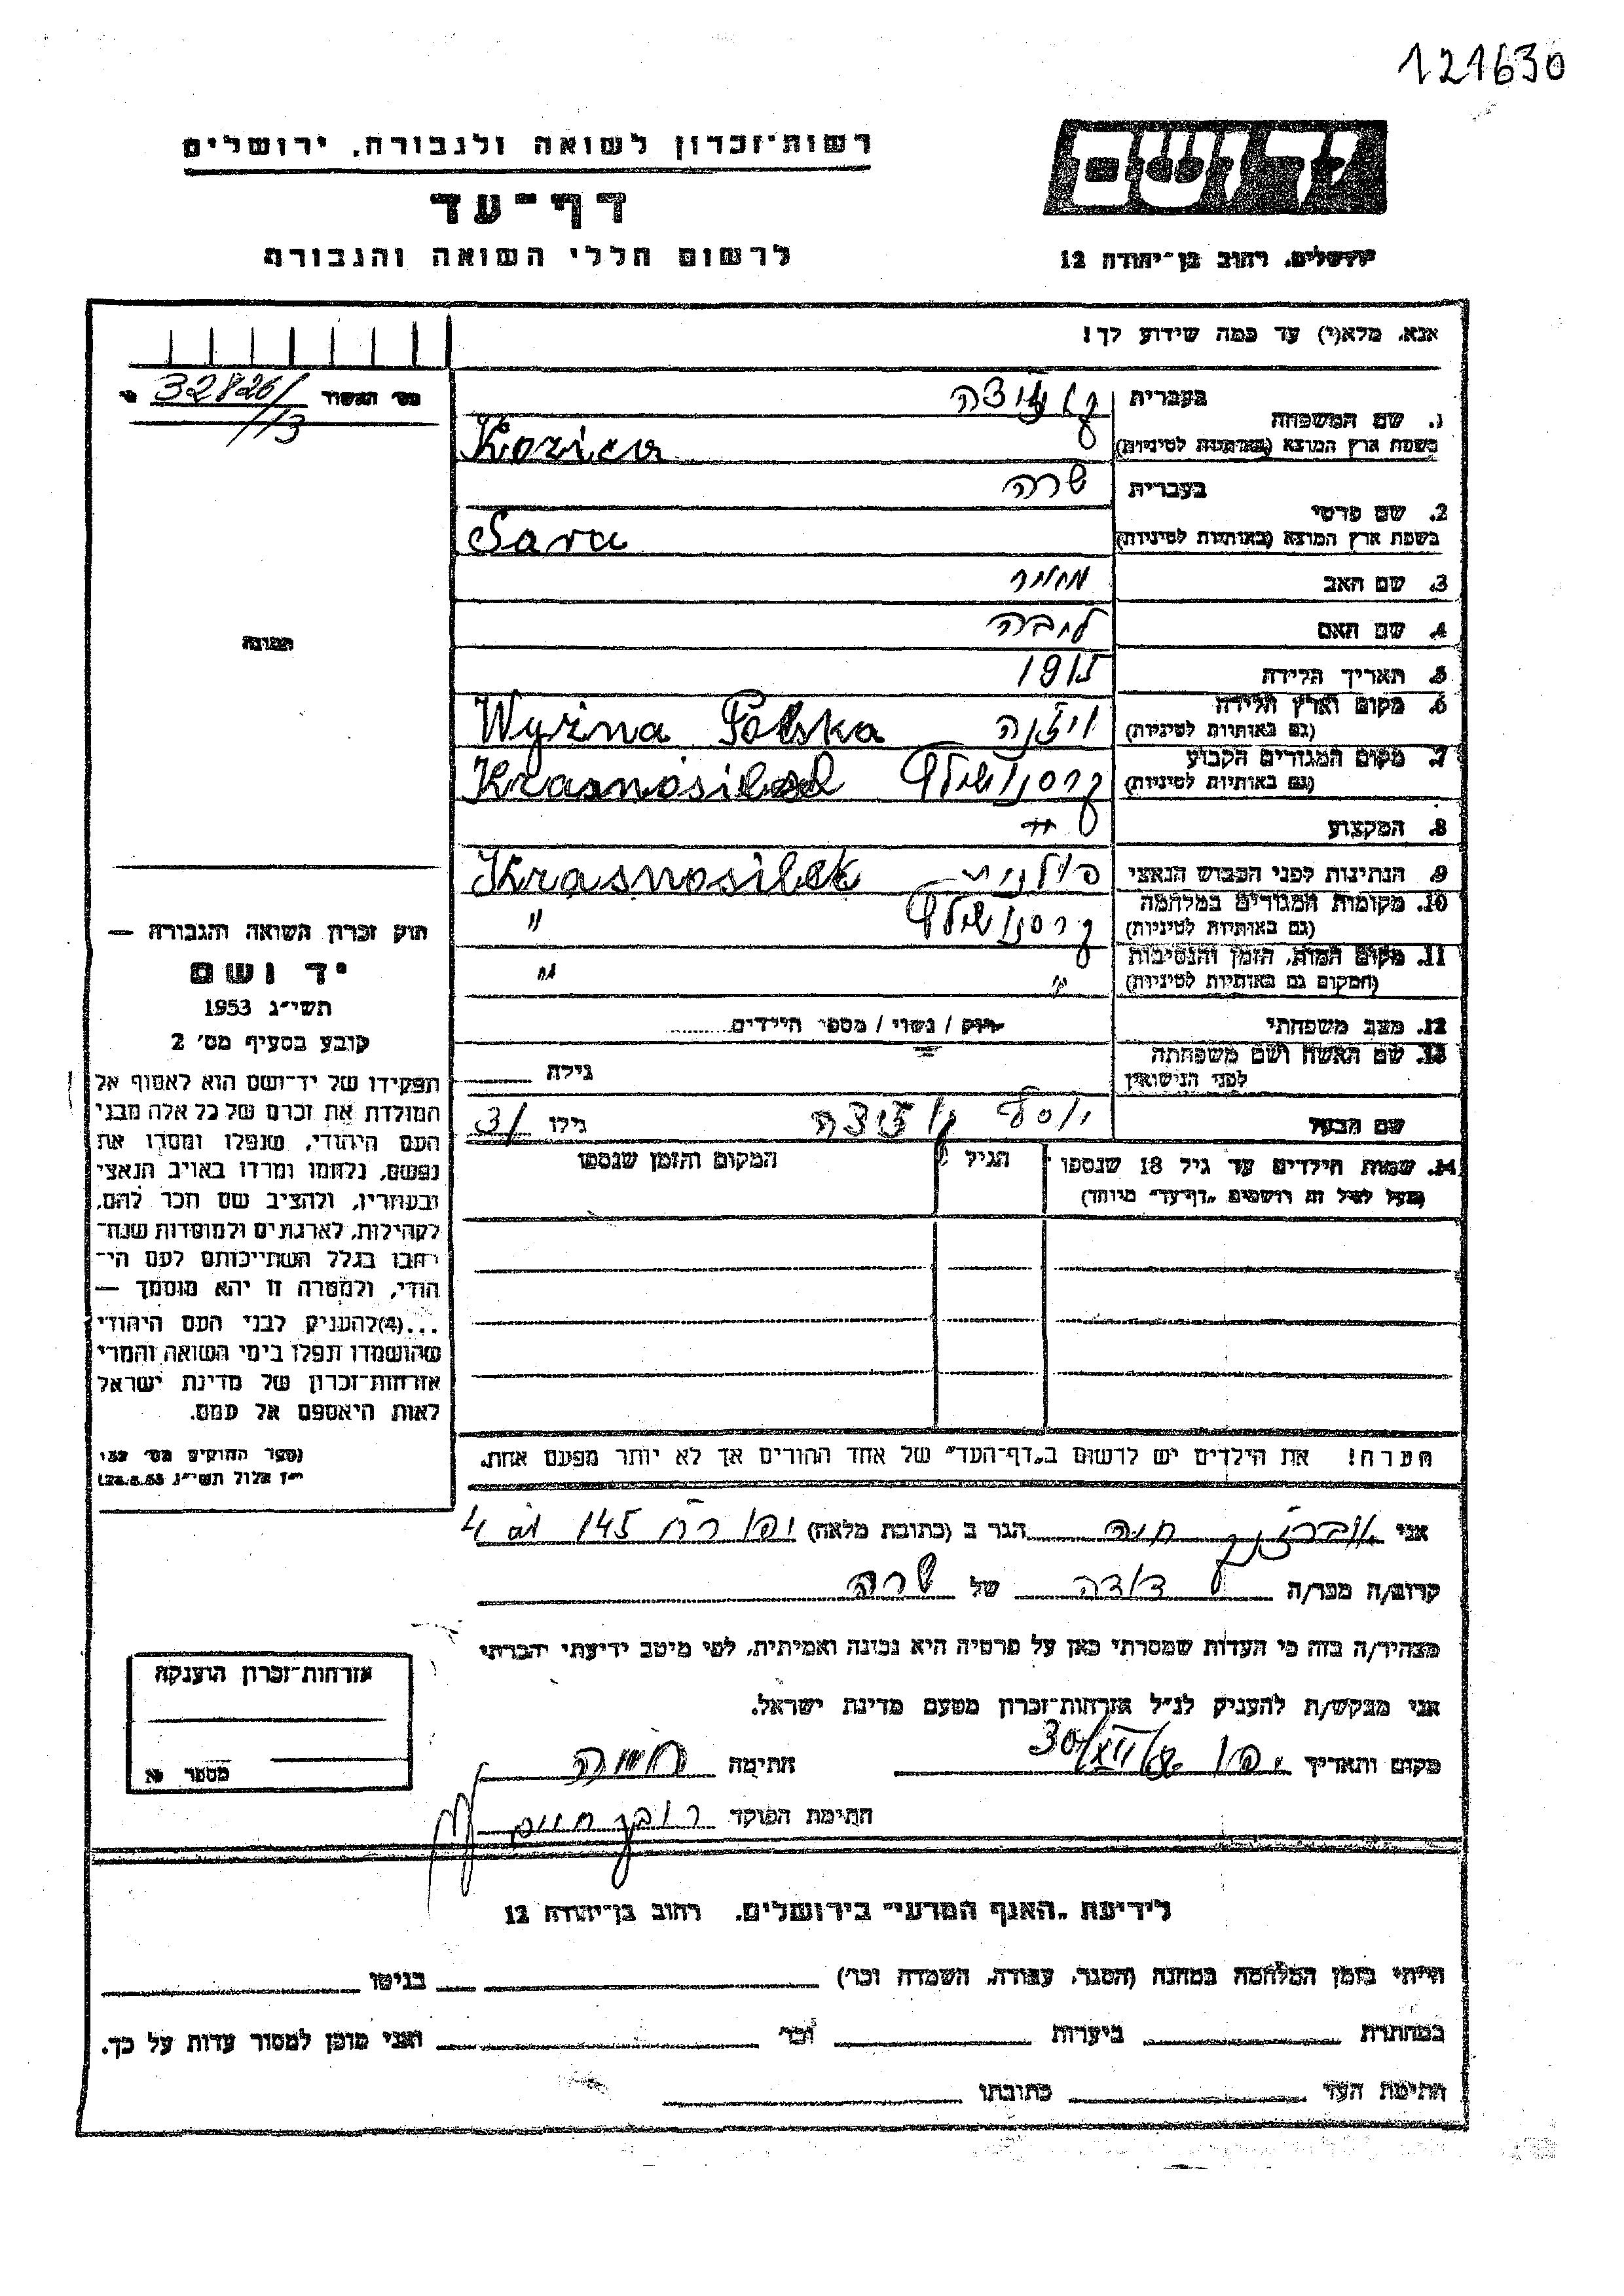 121630
יד ושם
ירושלים, רחוב בן־יהודה 12
רשות־זכרון לשואה ולגבורה, ירושלים
דף־עד
לרשום חללי השואה והגבורה
אנא, מלא(י) עד כמה שידוע לך!
מס׳ האשור 32826/
/13
1. שם המשפחה
בעברית
בשפת ארץ המוצא (באותיות לטיניות)
Kozica
2. שם פרטי
בעברית שרה
בשפת ארץ המוצא (באותיות לטיניות) Sara
3. שם האב מאיר
4. שם האם ליבה
5. תאריך הלידה 1915
6. מקום וארץ הלידה
(גם באותיות לטיניות) ויזנה Wyżna Polska
7. מקום המגורים הקבוע
(גם באותיות לטיניות) קרסנושילץ
8. המקצוע
9. הנתינות לפני הכבוש הנאצי פולנית Krasnosilek
10. מקומות המגורים במלחמה
(גם באותיות לטיניות) קרסנושילץ "
11. מקום המות, הזמן והנסיבות
(המקום גם באותיות לטיניות) " "
12. מצב משפחתי רווק / נשוי / מספר הילדים
13. שם האשה ושם משפחתה
לפני הנישואין גילה
שם הבעל יוסף גילו 31
14. שמות הילדים עד גיל 18 שנספו הגיל המקום והזמן שנספו
(מעל לגיל זה רושמים „דף־עד" מיוחד)
הערה! את הילדים יש לרשום ב„דף־העד" של אחד ההורים אך לא יותר מפעם אחת.
תמונה
חוק זכרון השואה והגבורה —
יד ושם
תשי״ג 1953
קובע בסעיף מס׳ 2
תפקידו של יד־ושם הוא לאסוף אל
המולדת את זכרם של כל אלה מבני
העם היהודי, שנפלו ומסרו את
נפשם, נלחמו ומרדו באויב הנאצי
ובעוזריו, ולהציב שם וזכר להם,
לקהילות, לארגונים ולמוסדות שנח־
רבו בגלל השתייכותם לעם הי־
הודי, ולמטרה זו יהא מוסמך —
...(4) להעניק לבני העם היהודי
שהושמדו ונפלו בימי השואה והמרי
אזרחות־זכרון של מדינת ישראל
לאות היאספם אל עמם.
(ספר החוקים מס׳ 132,
י״ז אלול תשי״ג 28.8.53)
אני חיה הגר ב (כתובת מלאה) 145
קרוב/ה מכר/ה דודה של שרה
מצהיר/ה בזה כי העדות שמסרתי כאן על פרטיה היא נכונה ואמיתית, לפי מיטב ידיעתי והכרתי
אני מבקש/ת להעניק לנ״ל אזרחות־זכרון מטעם מדינת ישראל.
מקום ותאריך יפו 30/XII/ חתימה
חתימת הפוקד חיים
אזרחות־זכרון הוענקה
מספר
לידיעת „האגף המדעי" בירושלים, רחוב בן־יהודה 12
הייתי בזמן המלחמה במחנה (הסגר, עבודה, השמדה וכר׳) בגיטו
במחתרת ביערות וכר׳ ואני מוכן למסור עדות על כך.
חתימת העד כתובתו